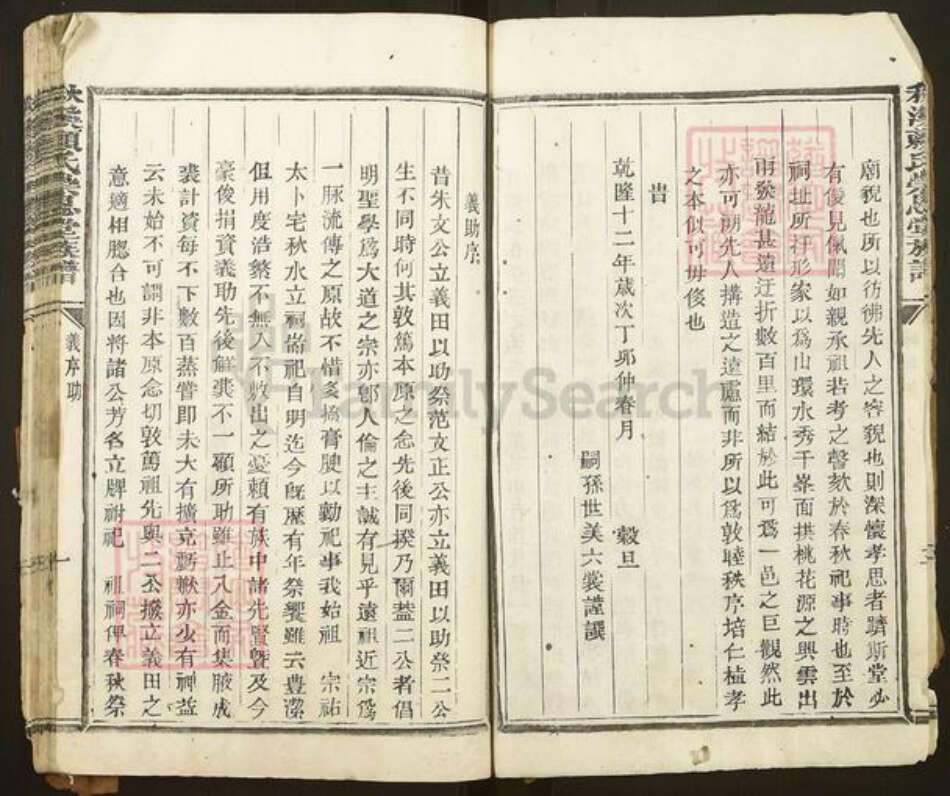 廟貌也所以彷彿先人之容貌也則深懷孝思者躋斯堂必
有僾見愾聞如親承祖若考之謦欬於春秋祀事時也至於
祠址所擇形家以為山環水秀千峯面拱桃花源之興雲出
雨發龍甚遠迂折數百里而結於此可為一邑之巨觀然此
亦可溯先人搆造之遠慮而非所以為敦睦秩序培仁植孝
之本似可毋俊也
旹
乾隆十二年歲次丁卯仲春月 穀旦
嗣孫世美六裳謹譔
義助序
昔朱文公立義田以助祭范文正公亦立義田以助祭二公
生不同時何其敦篤本原之念先後同揆乃爾蓋二公者倡
明聖學為大道之宗亦卽人倫之主誠有見乎遠祖近宗為
一脉流傳之原故不惜多搞膏腴以勷祀事我始祖 宗祐
太卜宅秋水立祠崙祀自明迄今旣歷有年祭饗雖云豊潔
但用度浩繁不無入不敷出之憂賴有族中諸先賢曁及今
豪俊捐資義助先後觧囊不一顧所助雖止八金而集腋成
裘計資每不下數百蒸嘗即未大有擴充
亦少有裨益
云未始不可謂非本原念切敦篤祖先與二公撥立義田之
意適相脗合也因將諸公芳名立牌祔祀 祖祠俾春秋祭
秋溪賴氏崇恩堂族譜
義序助
FamilySearch